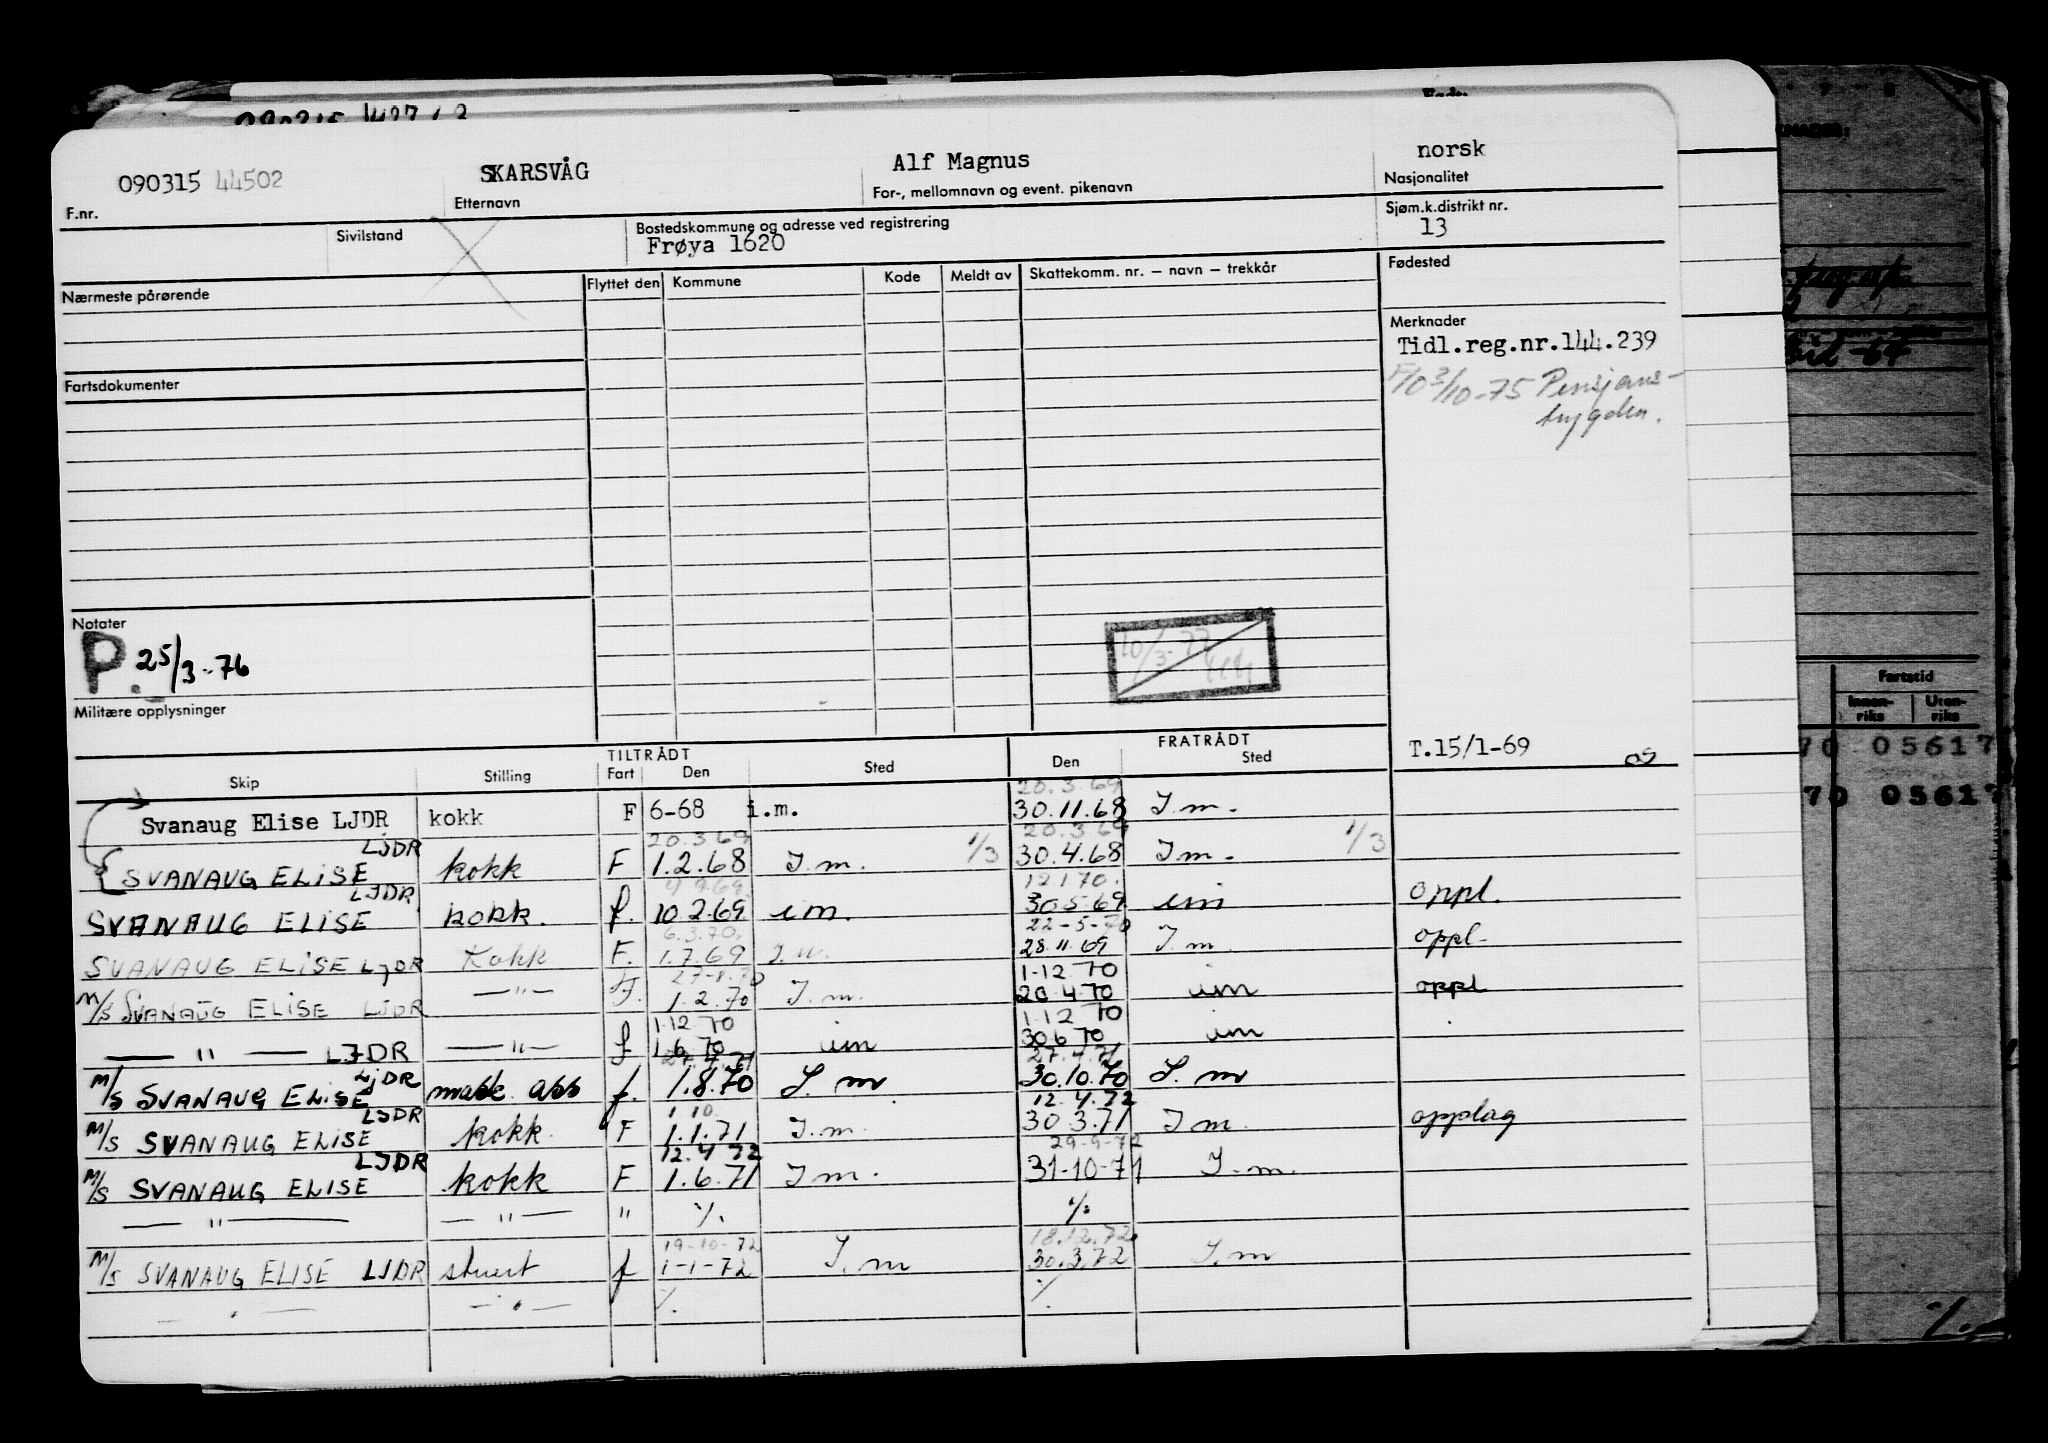 090315 44502 SKARSVÅG Alf Magnus norsk
F.nr. Etternavn For-, mellomnavn og event. pikenavn Nasjonalitet
Sivilstand Bostedskommune og adresse ved registrering Sjøm.k.distrikt nr.
Frøya 1620 13
Nærmeste pårørende Flyttet den Kommune Kode Meldt av Skattekomm. nr. – navn – trekkår Fødested
Merknader
Tidl.reg.nr.144.239
3/10-75 Pensjons-
trygden.
Fartsdokumenter
Notater
P. 25/3-76
10/3-77
Militære opplysninger
TILTRÅDT FRATRÅDT T.15/1-69
Skip Stilling Fart Den Sted Den Sted
20.3.69
Svanaug Elise LJDR kokk F 6-68 i.m. 30.11.68 I.m.
LJDR 20.3.69 20.3.69
SVANAUG ELISE kokk F 1.2.68 I.m. 1/3 30.4.68 I.m. 1/3
LJDR 12.1.70
SVANAUG ELISE kokk. f. 10.2.69 im. 30.5.69 im oppl.
6.3.70 22-5-70
SVANAUG ELISE LJDR Kokk F. 1.7.69 I.m. 28.11.69 I.m. oppl.
27-8-70 1-12 70
M/S SVANAUG ELISE LJDR —"— F. 1.2.70 I.m. 20.4.70 im oppl
1-12 70 1-12 70
— " — LJDR —"— f 1.6.70 im 30.6.70 im
LJDR 27.4.71 27.4.71
M/S SVANAUG ELISE mask. ass f. 1.8.70 I.m 30.10.70 I.m
LJDR 1.10. 12.4.72
M/S SVANAUG ELISE kokk F 1.1.71 I.m. 30.3.71 I m. opplag
LJDR 12.4.72 29-9-72
M/S SVANAUG ELISE kokk F 1.6.71 I m. 31-10-71 I.m.
— " — — " — " ./. ./.
19-10-72 18.12.72
M/S SVANAUG ELISE LJDR stuert f 1-1-72 I.m 30.3.72 I.m
— " — — " — ./. ./.
Fartstid
Innen-riks Uten-riks
70 05617
70 05617